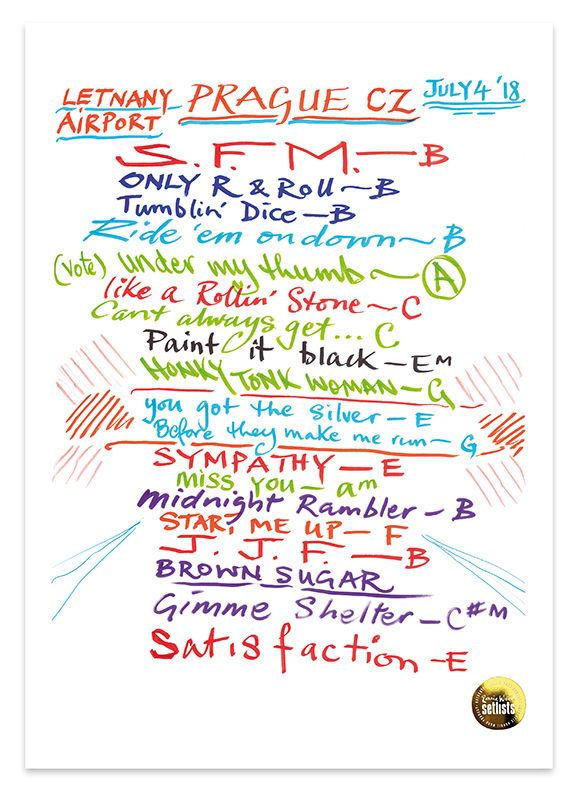 LETNANY AIRPORT PRAGUE CZ JULY 4 '18
S.F.M. — B
ONLY R & Roll ~ B
Tumblin' Dice — B
Ride 'em on down ~ B
(vote) under my thumb ~ A
like a Rollin' Stone ~ C
Cant always get... C
Paint it black — EM
HONKY TONK WOMAN — G
you got the silver — E
Before they make me run — G
SYMPATHY — E
MISS YOU — am
midnight Rambler — B
START ME UP — F
J.J.F. — B
BROWN SUGAR
Gimme Shelter — C#M
Satisfaction - E
Ronnie Wood
setlists